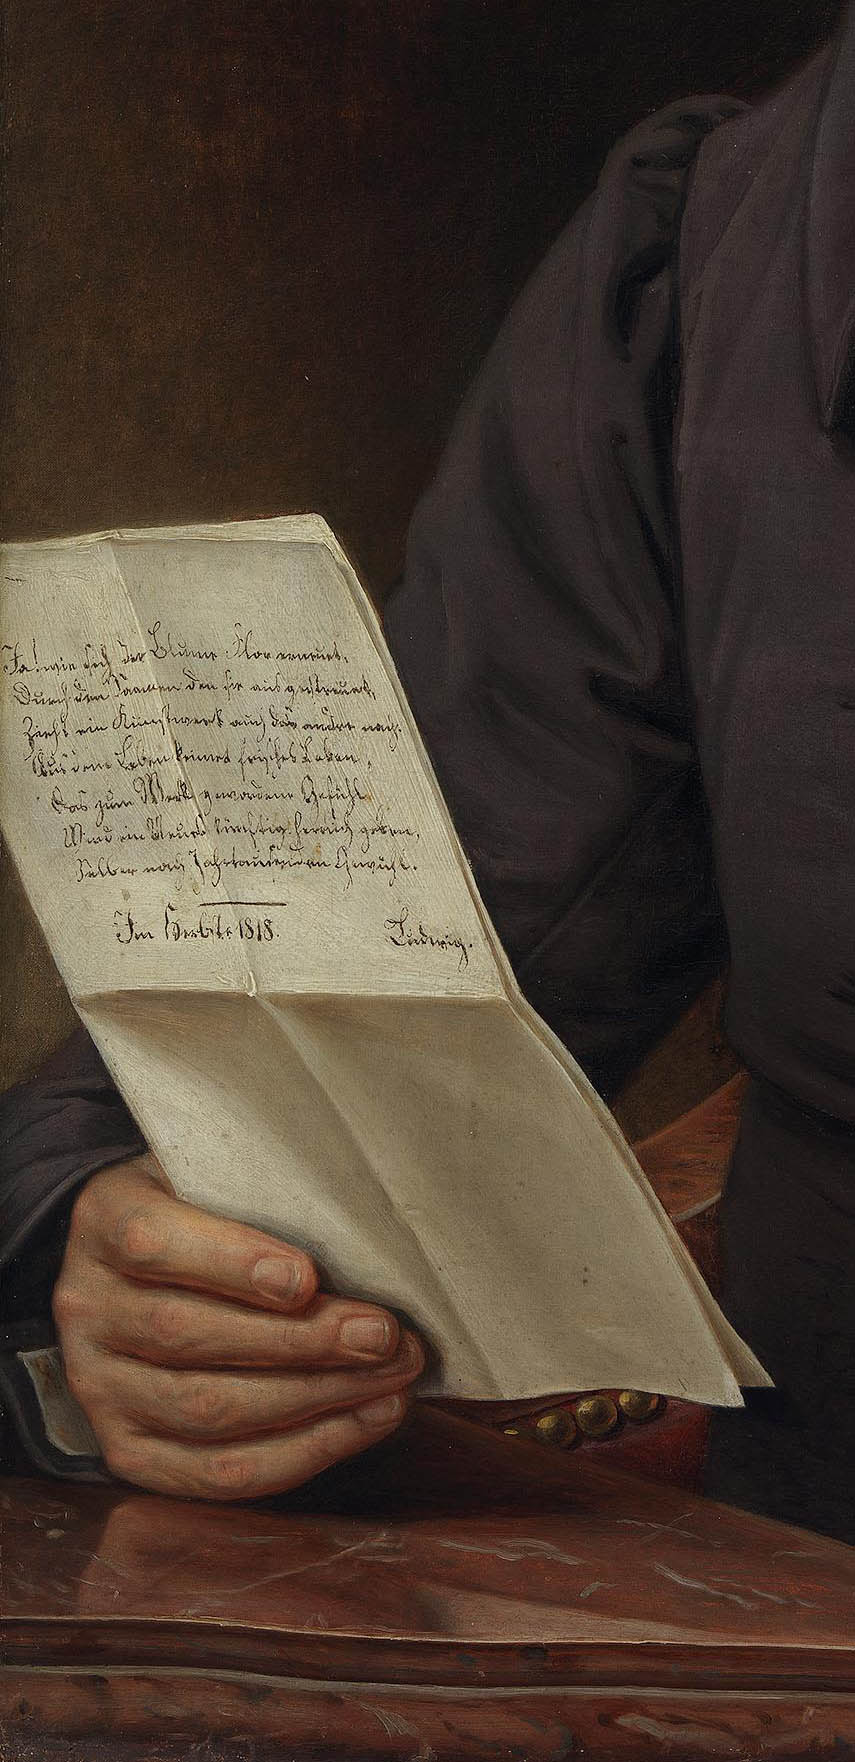 Ja! wie sich der Blume Flor erneuet,
Durch den Saamen den sie ausgestreuet,
Zieht ein Kunstwerk auch das andre nach.
Aus dem Leben keimet frisches Leben,
Das zum Werk gewordene Gefühl
Wird ein Neues künftig herrlich geben,
Selber nach Jahrtausenden Gewühl.
Im Herbste 1818. Ludwig.